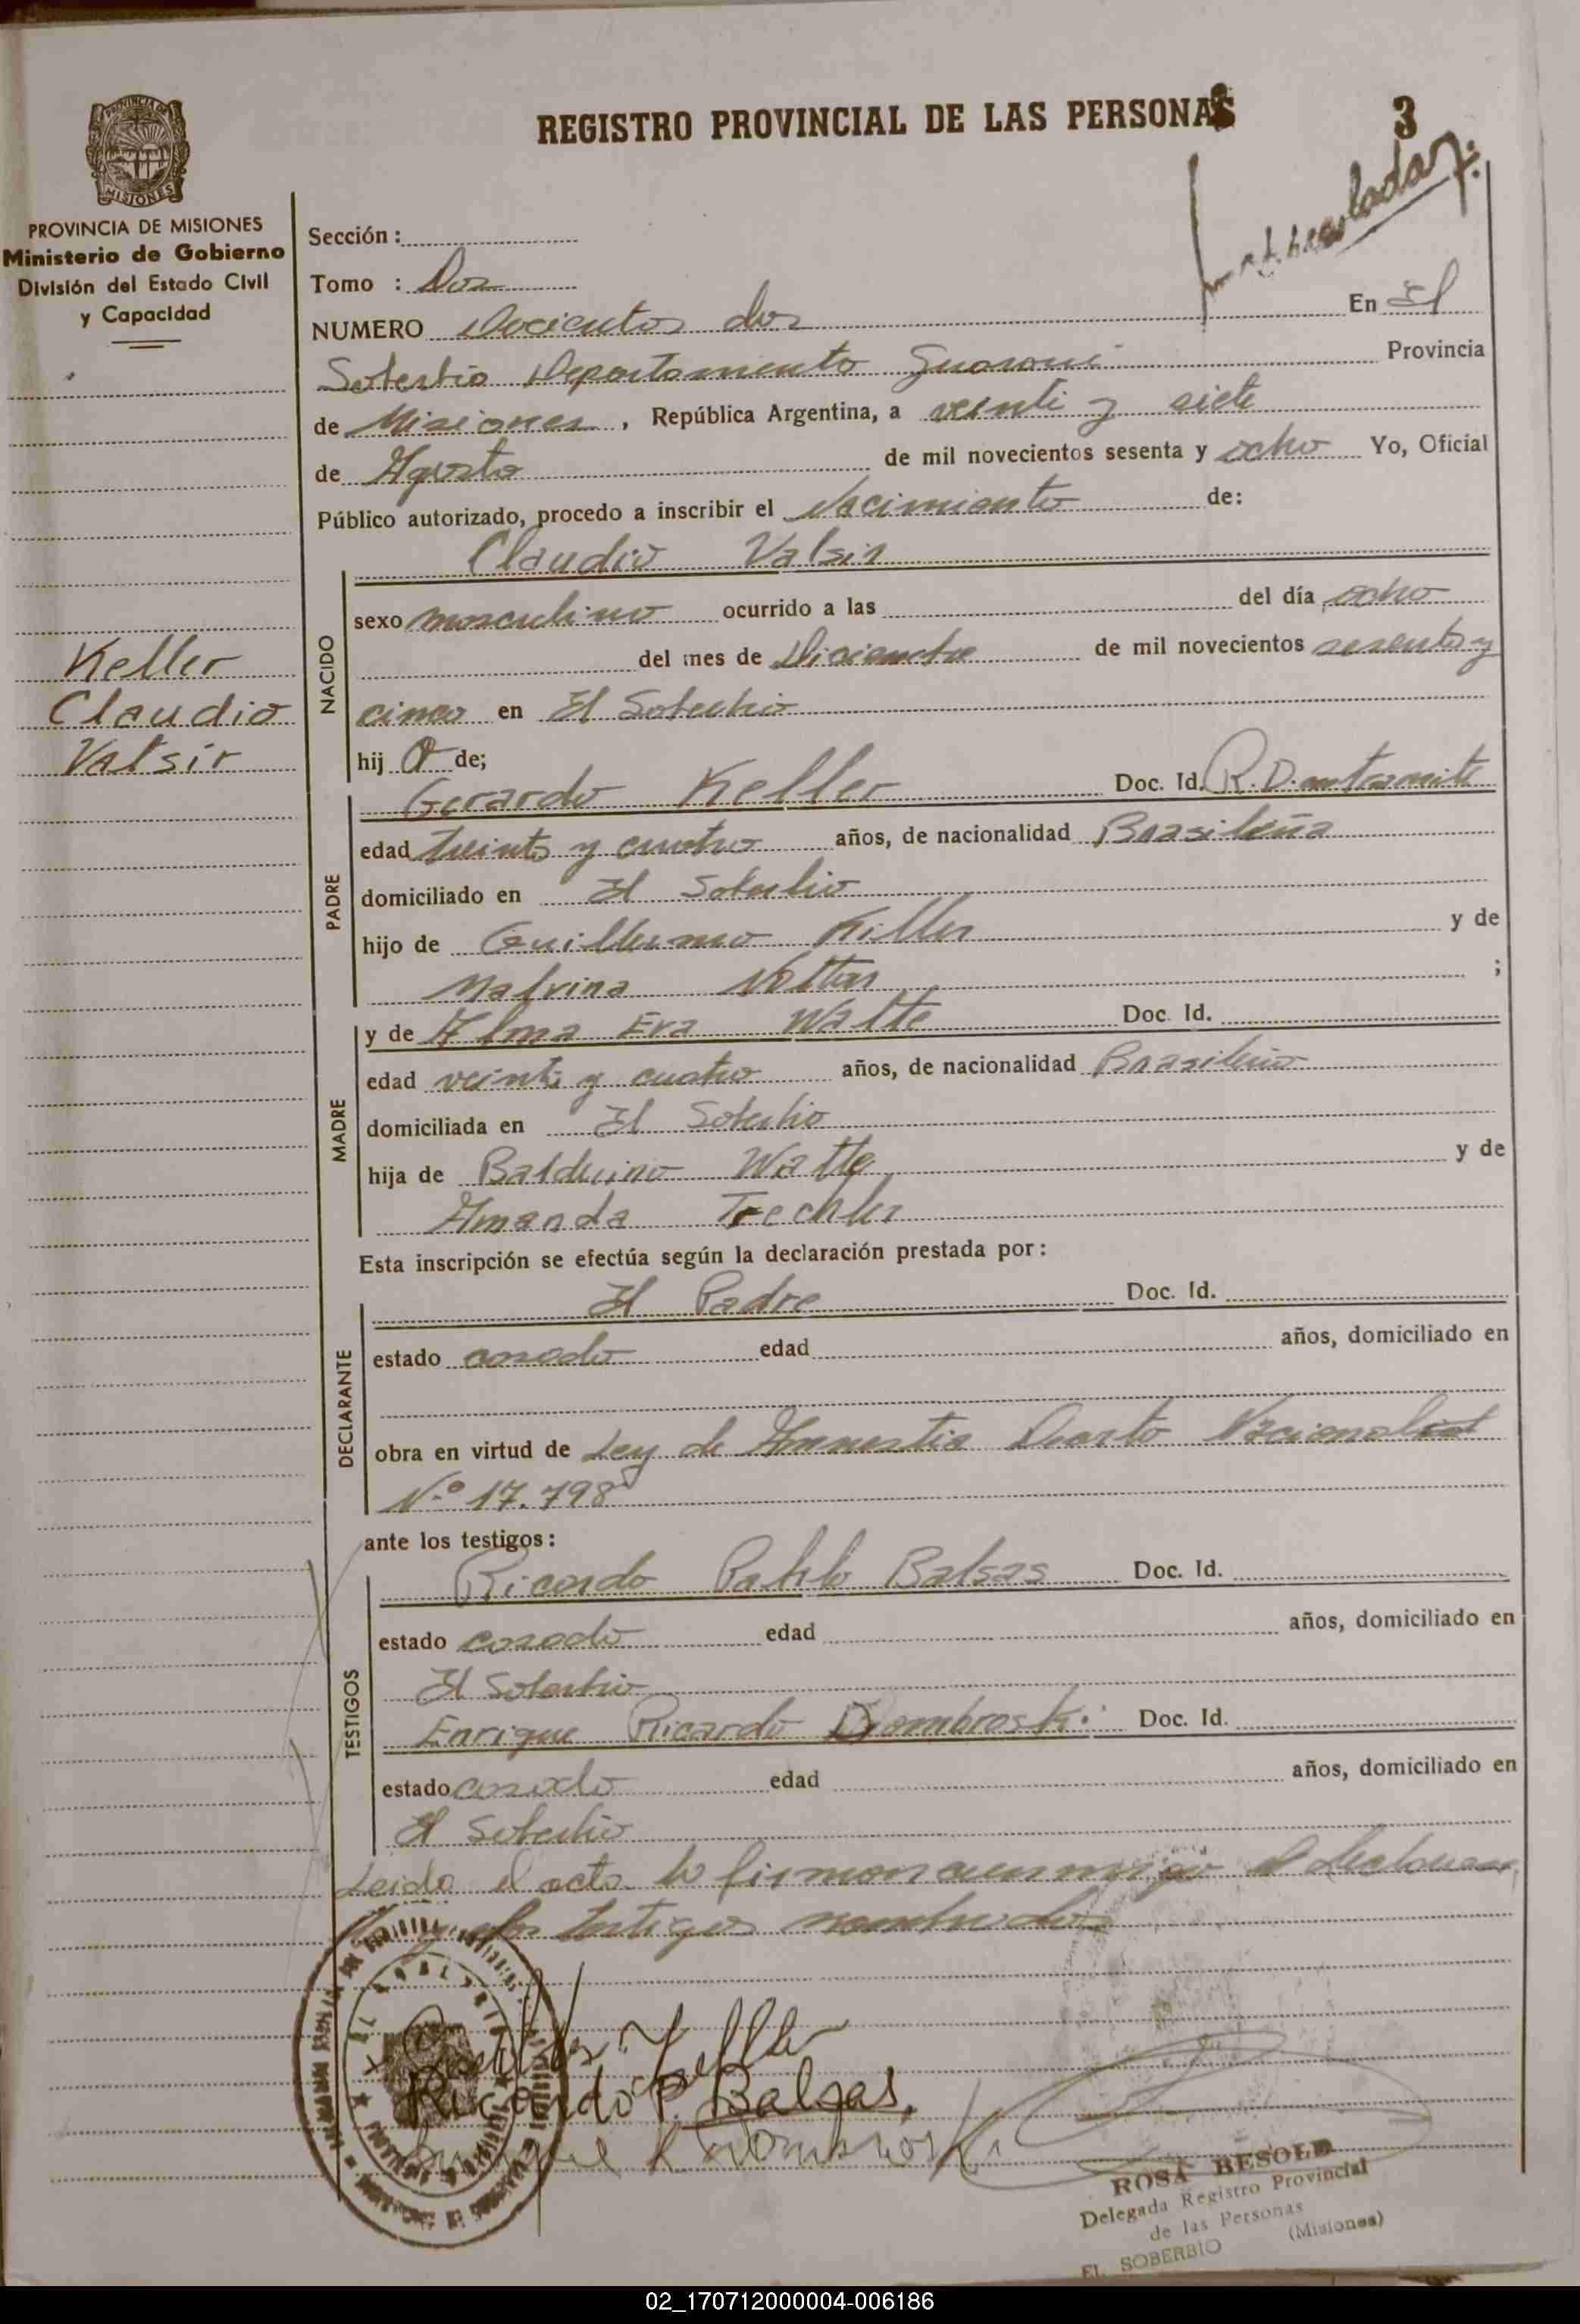 REGISTRO PROVINCIAL DE LAS PERSONAS
3
PROVINCIA DE MISIONES
PROVINCIA DE MISIONES
Ministerio de Gobierno
División del Estado Civil
y Capacidad
Keller
Claudio
Valsir
Sección :
Tomo : Dos
NUMERO Docientos dos En El
Soberbio Departamento Guarani Provincia
de Misiones, República Argentina, a veinti y siete
de Agosto de mil novecientos sesenta y ocho Yo, Oficial
Público autorizado, procedo a inscribir el Nacimiento de:
Claudio Valsir
NACIDO
sexo masculino ocurrido a las del día ocho
del mes de Diciembre de mil novecientos sesenta y
cinco en El Soberbio
hij o de;
PADRE
Gerardo Keller Doc. Id. R.D. en tramite
edad treinta y cuatro años, de nacionalidad Brasileña
domiciliado en El Soberbio
hijo de Guillermo Killer y de
Malvina Nolter ;
MADRE
y de Alma Eva Watte Doc. Id.
edad veinti y cuatro años, de nacionalidad Brasileña
domiciliada en El Soberbio
hija de Balduino Watte y de
Amanda Trechler
Esta inscripción se efectúa según la declaración prestada por:
DECLARANTE
El Padre Doc. Id.
estado casado edad años, domiciliado en
obra en virtud de Ley de Amnestia Decreto Nacional
N.º 17.798
ante los testigos:
TESTIGOS
Ricardo Pablo Balsas Doc. Id.
estado casado edad años, domiciliado en
El Soberbio
Enrique Ricardo Dombroski Doc. Id.
estado casado edad años, domiciliado en
El Soberbio
Leida el acta la firman conmigo el declaran
y los testigos nombrados
Keller
Ricardo P. Balsas.
Enrique R Dombroski
ROSA BESOLD
Delegada Registro Provincial
de las Personas
EL SOBERBIO (Misiones)
02_170712000004-006186